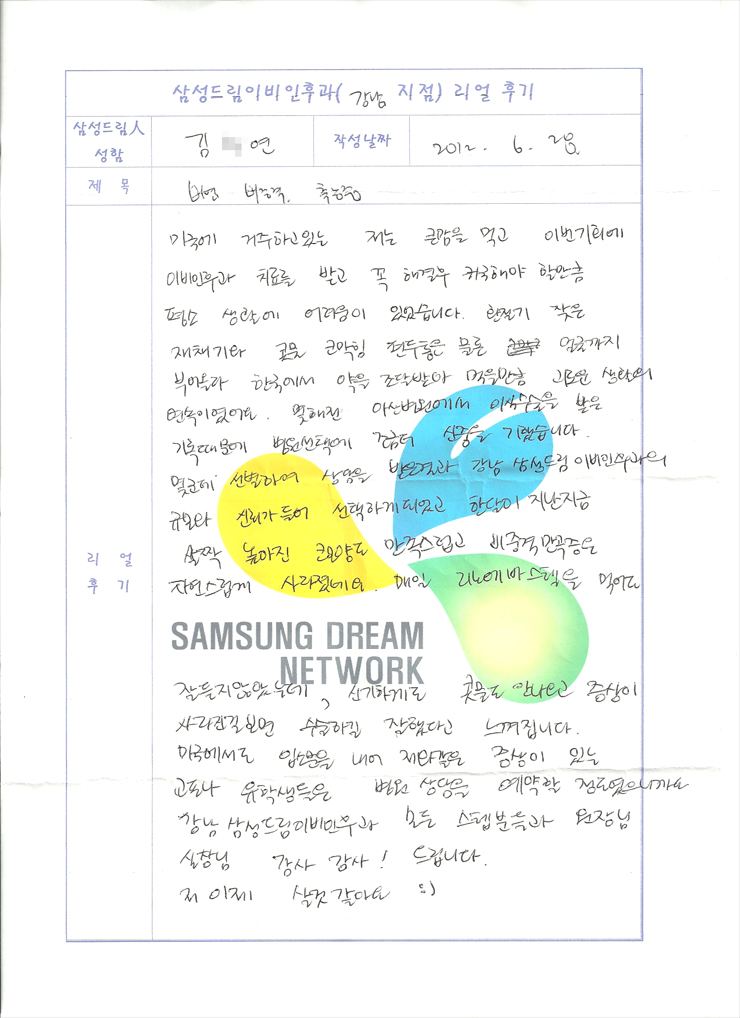 삼성드림이비인후과( 강남 지점) 리얼 후기
삼성드림人
성함
김 연
작성날짜
2012. 6.
제 목
비염 비중격. 축농증
미국에 거주하고있는 저는 큰맘을 먹고 이번기회에
이비인후과 치료를 받고 꼭 해결후 귀국해야 할만큼
평소 생활에 어려움이 있었습니다. 환절기 잦은
재채기와 콧물 코막힘 편두통은 물론 얼굴까지
부어올라 한국에서 약을 조달받아 먹을만큼 고로운 생활의
연속이였어요. 몇해전 아산병원에서 이식수술을 받은
기록때문에 병원선택에 더 신중을 기했습니다.
몇군데 선별하여 상담을 받은결과 강남 삼성드림이비인후과의
규모와 신뢰가들어 선택하게되었고 한달이 지난지금
살짝 높아진 코모양도 만족스럽고 비중격만곡증은
자연스럽게 사라졌네요. 매일 을 먹어도
SAMSUNG DREAM
NETWORK
잘듣지않았는데, 신기하게도 콧물도 안나오고 증상이
사라진걸보면 수술하길 잘했다고 느껴집니다.
미국에서도 입소문을 내어 저와같은 증상이 있는
교포나 유학생들은 병원 상담을 예약할 정도였으니까요
강남 삼성드림이비인후과 모든 스텝분들과 원장님
실장님 감사 감사! 드립니다.
저 이제 살것같아요 :)
리 얼
후 기